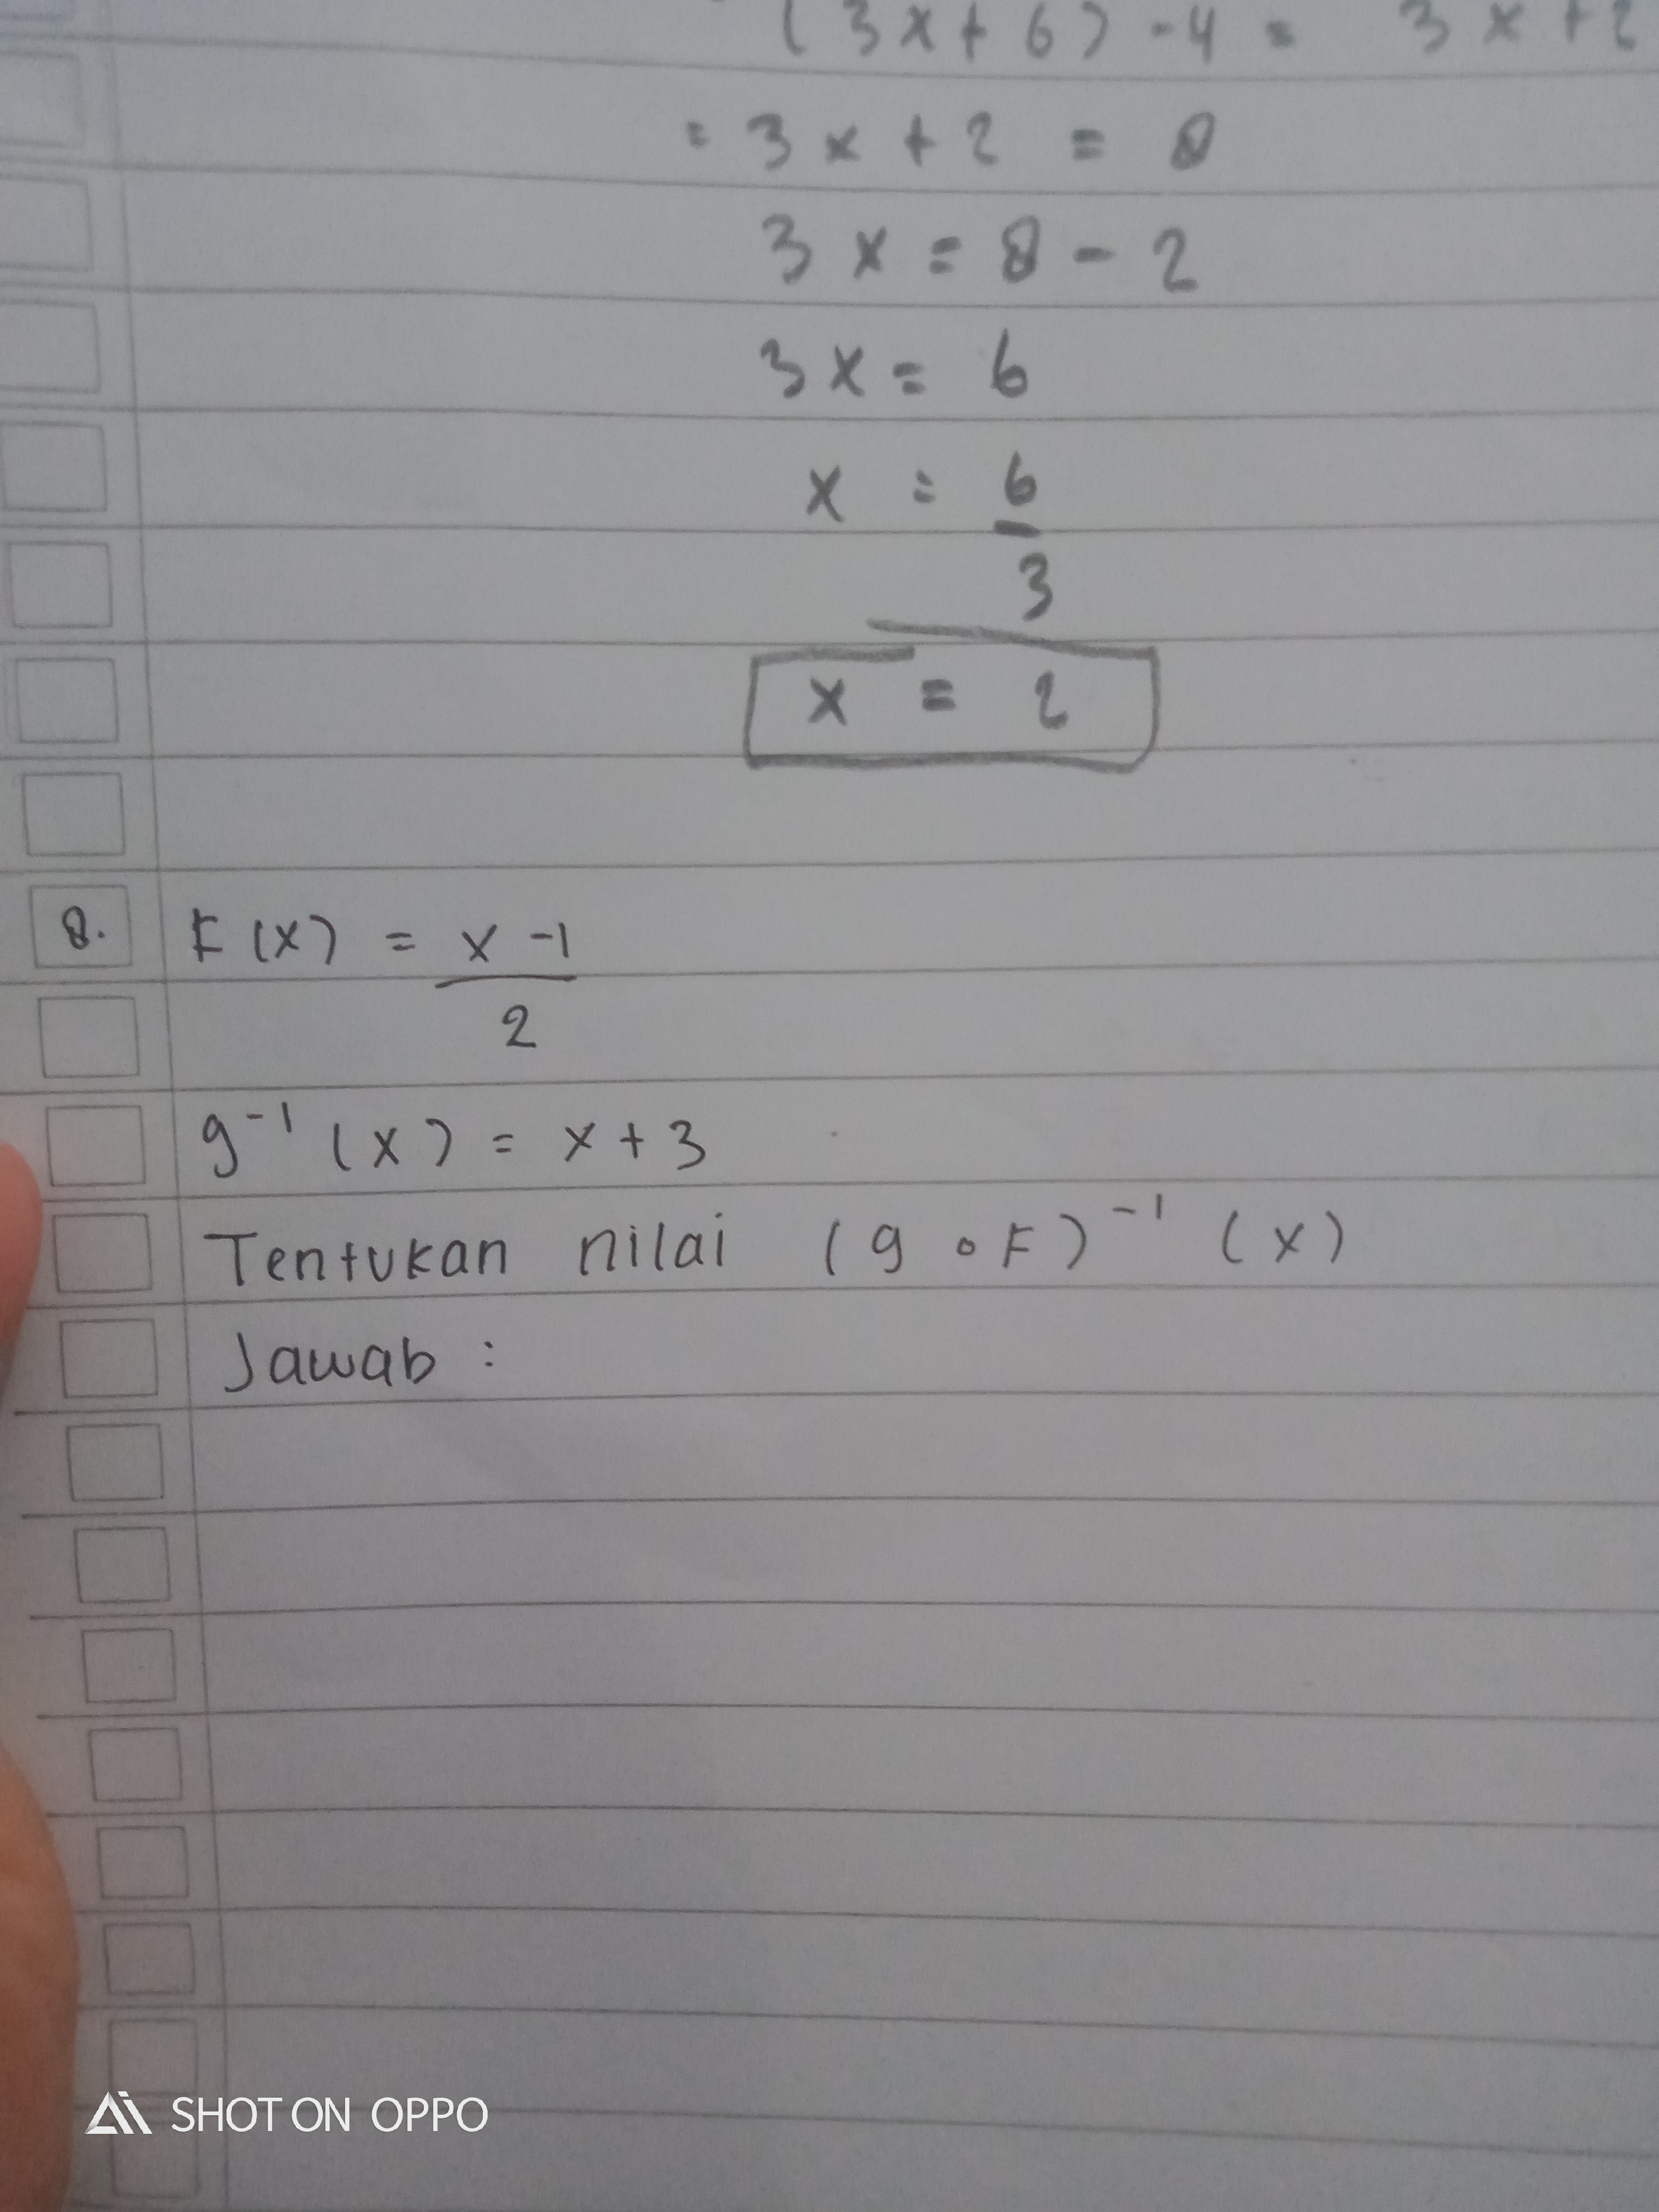 (3x+6)-4 = 3x+2
= 3x+2 = 8
3x = 8-2
3x = 6
x = 6
3
x = 2
8. F(x) = x-1
2
g⁻¹(x) = x+3
Tentukan nilai (g∘F)⁻¹(x)
Jawab :
SHOT ON OPPO